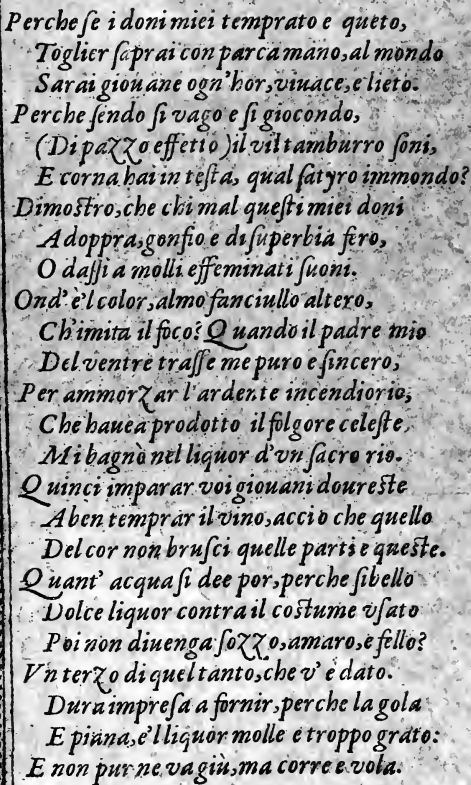 Perche ſe i doni miei temprato e queto,
Toglier ſaprai con parca mano, al mondo
Sarai giouane ogn'hor, viuace, e lieto.
Perche ſendo ſi vago e ſi giocondo,
(Di pazzo effetto) il vil tamburro ſoni,
E corna hai in teſta, qual ſatyro immondo?
Dimoſtro, che chi mal queſti miei doni
Adoppra, gonfio e di ſuperbia fero,
O daſſi a molli effeminati ſuoni.
Ond' è'l color, almo fanciullo altero,
Ch'imita il foco? Quando il padre mio
Del ventre traſſe me puro e ſincero,
Per ammorzar l'ardente incendio rio,
Che hauea prodotto il folgore celeſte,
Mi bagnò nel liquor d'vn ſacro rio.
Quinci imparar voi giouani doureſte
A ben temprar il vino, acciò che quello
Del cor non bruſci quelle parti e queſte.
Quant' acqua ſi dee por, perche ſi bello
Dolce liquor contra il coſtume vſato
Poi non diuenga ſozzo, amaro, e fello?
Vn terzo di quel tanto, che v' è dato.
Dura impreſa a fornir, perche la gola
E piana, e'l liquor molle e troppo grato:
E non pur ne va giù, ma corre e vola.